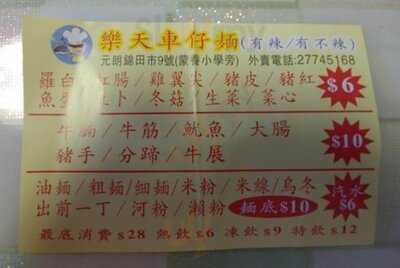 樂天車仔麵(有辣/有不辣)
元朗錦田市9號(蒙養小學旁) 外賣電話:27745168
蘿白 紅腸/雞翼尖/豬皮/豬紅
魚蛋 卜/冬菇/生菜/菜心
$6
牛腩/牛筋/魷魚/大腸
豬手/分蹄/牛展
$10
油麵/粗麵/細麵/米粉/米線/烏冬
出前一丁/河粉/瀨粉 麵底$10
汽水
$6
最底消費$28 熱飲$6 凍飲$9 特飲$12